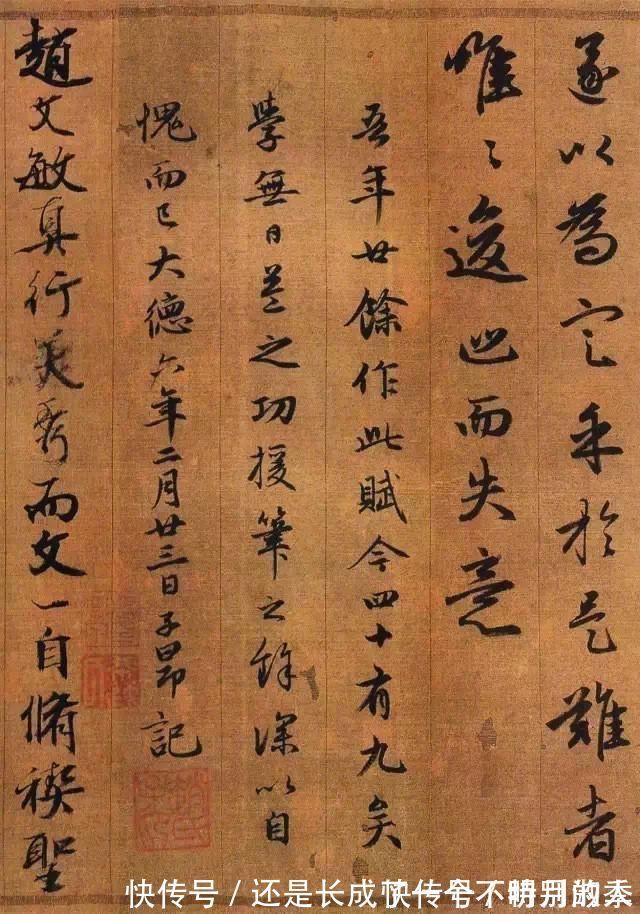 遂以為定乎於是難者
唯〻逡巡而失意
吾年廿餘作此賦今四十有九矣
學無日益之功援筆之餘深以自
愧而已大德六年二月廿三日子昂記
趙文敏真行美秀而文一自脩禊聖
快传号 / 还是长成